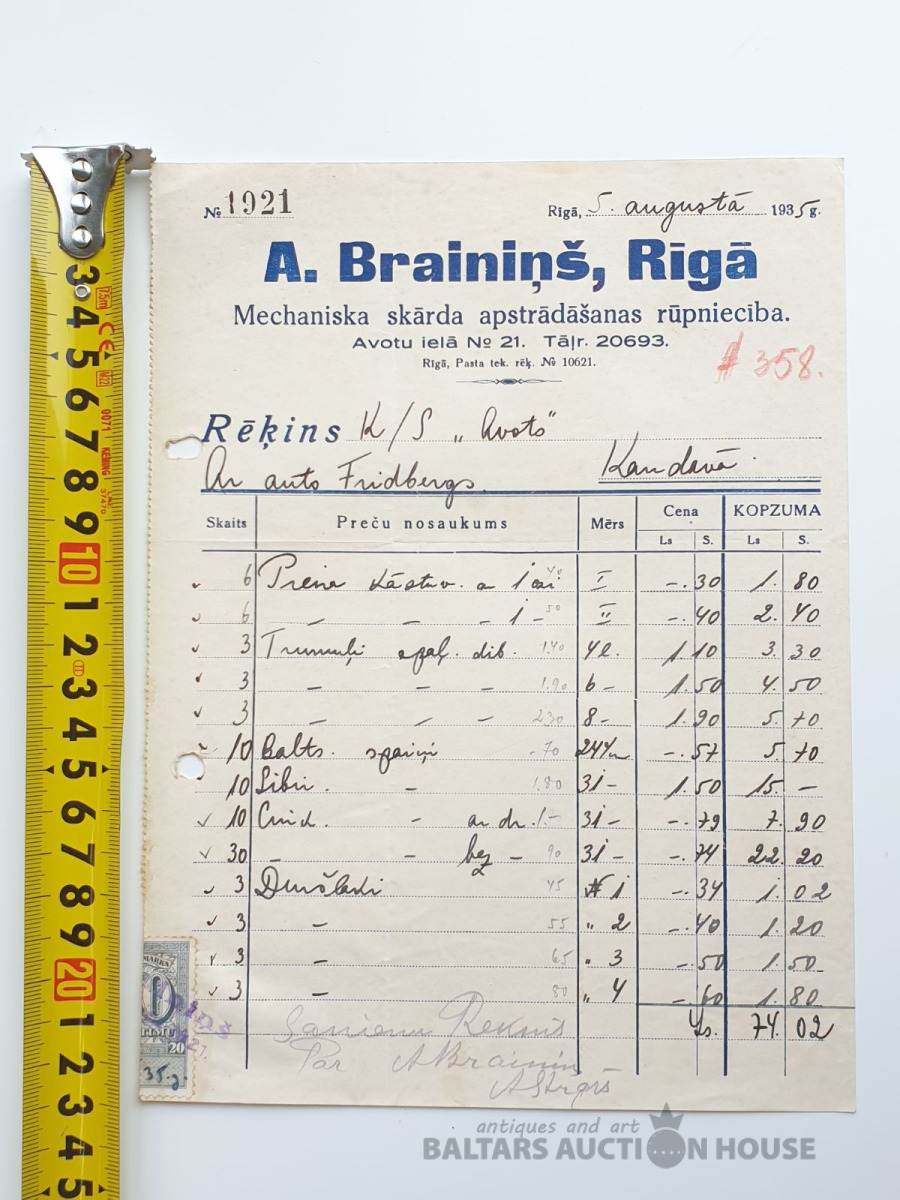 № 1921 Rīgā, 5. augustā 1935 g.
A. Brainiņš, Rīgā
Mechaniska skārda apstrādāšanas rūpniecība.
Avotu ielā № 21. Tāļr. 20693.
Rīgā, Pasta tek. rēķ. № 10621.
# 358.
Rēķins K/S „Avots"
Ar auto Fridbergs Kandavā.
Skaits Preču nosaukums Mērs Cena KOPZUMA
Ls S. Ls S.
6 Piena a 40 I -.30 1.80
6 — — — 1 — 50 II -.40 2.40
3 Trumuļi apaļ. dib. 1.40 4 l. 1.10 3.30
3 — — — 1.90 6 - 1.50 4.50
3 — — — 2.30 8 - 1.90 5.70
10 Balts. spaiņi -.70 -.57 5.70
10 — 1.80 31 - 1.50 15.—
10 Cink. - ar dr. 1.- 31 - -.79 7.90
30 — - bez — 90 31 - -.74 22.20
3 Duršlaki 45 # 1 -.34 1.02
3 — 55 „ 2 -.40 1.20
3 — 65 „ 3 -.50 1.50
3 — 80 „ 4 -.60 1.80
Ls. 74.02
Par A Brainiņ
20
35. g.
3 4 5 6 7 8 9 10 1 2 3 4 5 6 7 8 9 20 1 2 3 4
7.5m
CE
M22
0071
KEMING
37470
antiques and art
BALTARS AUCTION HOUSE